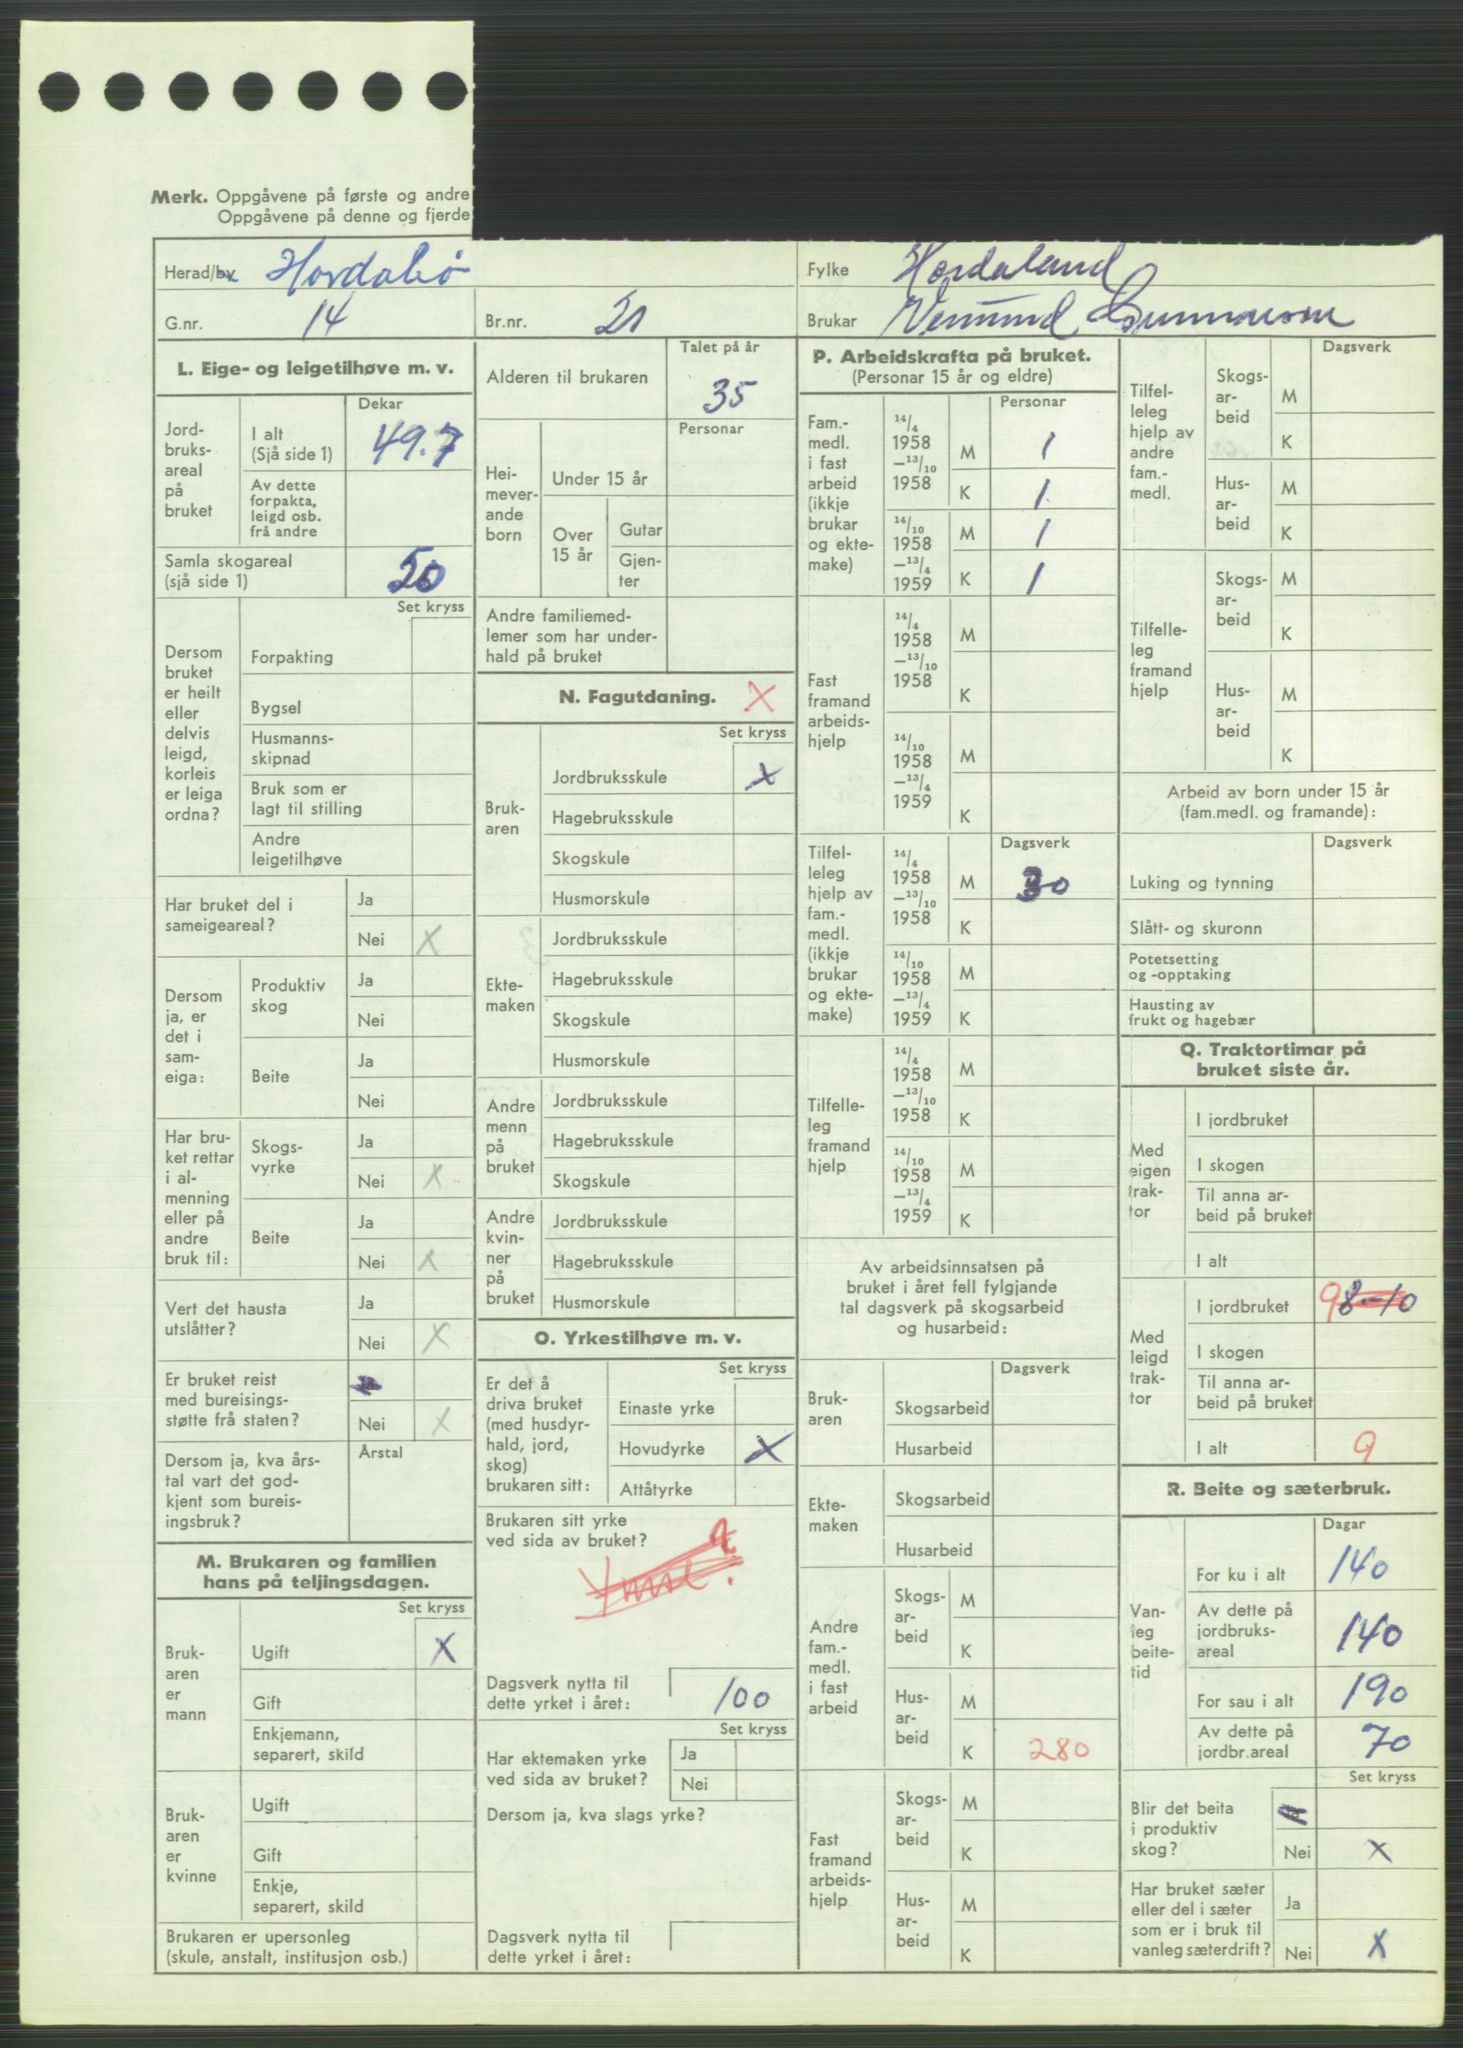 Merk. Oppgåvene på første og andre
Oppgåvene på denne og fjerde
Herad/by Hordabø
Fylke Hordaland
G.nr. 14
Br.nr. 21
Brukar
L. Eige- og leigetilhøve m. v.
Dekar
Jord-
bruks-
areal
på
bruket
I alt
(Sjå side 1)
49.7
Av dette
forpakta,
leigd osb.
frå andre
Samla skogareal
(sjå side 1)
50
Set kryss
Dersom
bruket
er heilt
eller
delvis
leigd,
korleis
er leiga
ordna?
Forpakting
Bygsel
Husmanns-
skipnad
Bruk som er
lagt til stilling
Andre
leigetilhøve
Har bruket del i
sameigeareal?
Ja
Nei X
Dersom
ja, er
det i
sam-
eiga:
Produktiv
skog
Ja
Nei
Beite
Ja
Nei
Har bru-
ket rettar
i al-
menning
eller på
andre
bruk til:
Skogs-
vyrke
Ja
Nei X
Beite
Ja
Nei X
Vert det hausta
utslåtter?
Ja
Nei X
Er bruket reist
med bureisings-
støtte frå staten?
Ja
Nei X
Dersom ja, kva års-
tal vart det god-
kjent som bureis-
ingsbruk?
Årstal
M. Brukaren og familien
hans på teljingsdagen.
Set kryss
Bruk-
aren
er
mann
Ugift X
Gift
Enkjemann,
separert, skild
Bruk-
aren
er
kvinne
Ugift
Gift
Enkje,
separert, skild
Brukaren er upersonleg
(skule, anstalt, institusjon osb.)
Talet på år
Alderen til brukaren
35
Personar
Hei-
mever-
ande
born
Under 15 år
Over
15 år
Gutar
Gjen-
ter
Andre familiemed-
lemer som har under-
hald på bruket
N. Fagutdaning. X
Set kryss
Bruk-
aren
Jordbruksskule X
Hagebruksskule
Skogskule
Husmorskule
Ekte-
maken
Jordbruksskule
Hagebruksskule
Skogskule
Husmorskule
Andre
menn
på
bruket
Jordbruksskule
Hagebruksskule
Skogskule
Andre
kvin-
ner
på
bruket
Jordbruksskule
Hagebruksskule
Husmorskule
O. Yrkestilhøve m. v.
Set kryss
Er det å
driva bruket
(med husdyr-
hald, jord,
skog)
brukaren sitt:
Einaste yrke
Hovudyrke X
Attåtyrke
Brukaren sitt yrke
ved sida av bruket?
Dagsverk nytta til
dette yrket i året:
100
Set kryss
Har ektemaken yrke
ved sida av bruket?
Ja
Nei
Dersom ja, kva slags yrke?
Dagsverk nytta til
dette yrket i året:
P. Arbeidskrafta på bruket.
(Personar 15 år og eldre)
Personar
Fam.-
medl.
i fast
arbeid
(ikkje
brukar
og ekte-
make)
14/4
1958
—13/10
1958
M 1
K 1
14/10
1958
—13/4
1959
M 1
K 1
Fast
framand
arbeids-
hjelp
14/4
1958
—13/10
1958
M
K
14/10
1958
—13/4
1959
M
K
Dagsverk
Tilfel-
leleg
hjelp av
fam.-
medl.
(ikkje
brukar
og ekte-
make)
14/4
1958
—13/10
1958
M 30
K
14/10
1958
—13/4
1959
M
K
Tilfelle-
leg
framand
hjelp
14/4
1958
—13/10
1958
M
K
14/10
1958
—13/4
1959
M
K
Av arbeidsinnsatsen på
bruket i året fell fylgjande
tal dagsverk på skogsarbeid
og husarbeid:
Dagsverk
Bruk-
aren
Skogsarbeid
Husarbeid
Ekte-
maken
Skogsarbeid
Husarbeid
Andre
fam.-
medl.
i fast
arbeid
Skogs-
ar-
beid
M
K
Hus-
ar-
beid
M
K 280
Fast
framand
arbeids-
hjelp
Skogs-
ar-
beid
M
K
Hus-
ar-
beid
M
K
Dagsverk
Tilfel-
leleg
hjelp av
andre
fam.-
medl.
Skogs-
ar-
beid
M
K
Hus-
ar-
beid
M
K
Tilfelle-
leg
framand
hjelp
Skogs-
ar-
beid
M
K
Hus-
ar-
beid
M
K
Arbeid av born under 15 år
(fam.medl. og framande):
Dagsverk
Luking og tynning
Slått- og skuronn
Potetsetting
og -opptaking
Hausting av
frukt og hagebær
Q. Traktortimar på
bruket siste år.
Med
eigen
trak-
tor
I jordbruket
I skogen
Til anna ar-
beid på bruket
I alt
Med
leigd
trak-
tor
I jordbruket 9 8-10
I skogen
Til anna ar-
beid på bruket
I alt 9
R. Beite og sæterbruk.
Dagar
Van-
leg
beite-
tid
For ku i alt 140
Av dette på
jordbruks-
areal
140
For sau i alt 190
Av dette på
jordbr.areal
70
Set kryss
Blir det beita
i produktiv
skog?
Ja
Nei X
Har bruket sæter
eller del i sæter
som er i bruk til
vanleg sæterdrift?
Ja
Nei X